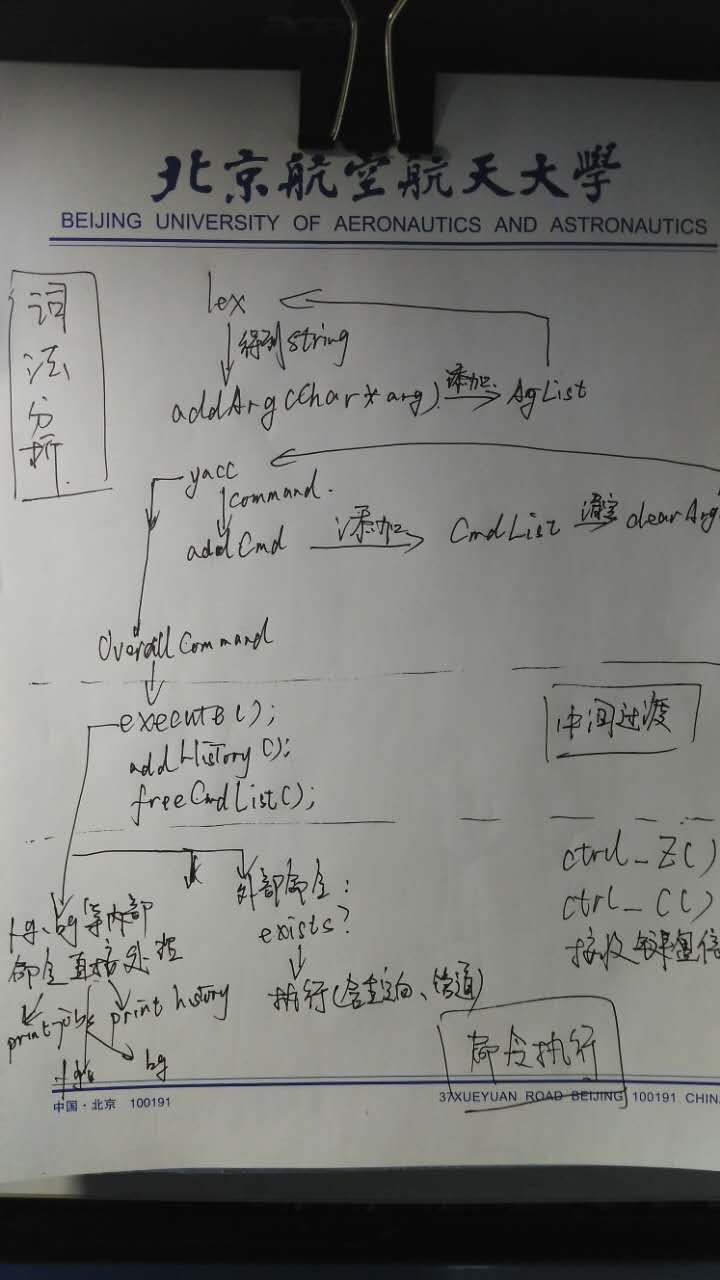 北京航空航天大學
BEIJING UNIVERSITY OF AERONAUTICS AND ASTRONAUTICS
词法分析
lex
得到string
addArg(char*arg) 添加 AgList
yacc
command.
addCmd 添加 CmdList 清空 clearArg
Overall Command
execute();
addHistory();
freeCmdList();
中间过渡
fg、bg等内部
命令直接处理
print jobs
print history
fg
bg
外部命令:
exists?
执行(含重定向、管道)
ctrl_Z()
ctrl_C()
接收键盘信
命令执行
中国·北京 100191
37XUEYUAN ROAD BEIJING 100191 CHIN